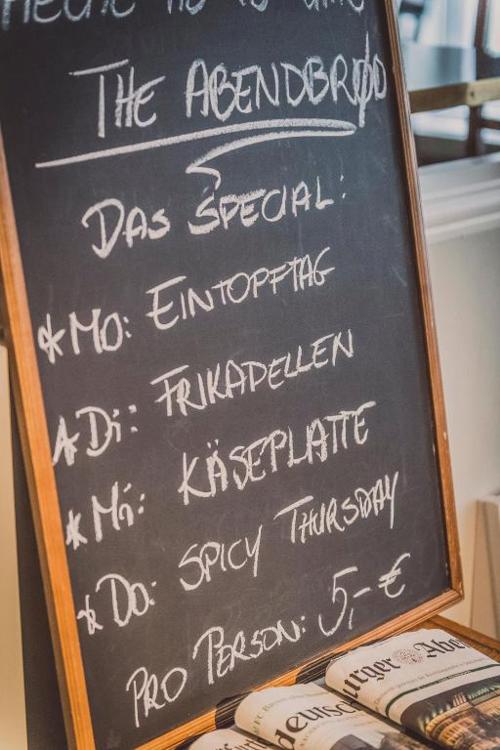 THE ABENDBRØD
DAS SPECIAL:
*MO: EINTOPFTAG
*Di: FRIKADELLEN
*Mi: KÄSEPLATTE
*Do: SPICY THURSDAY
PRO PERSON: 5,- €